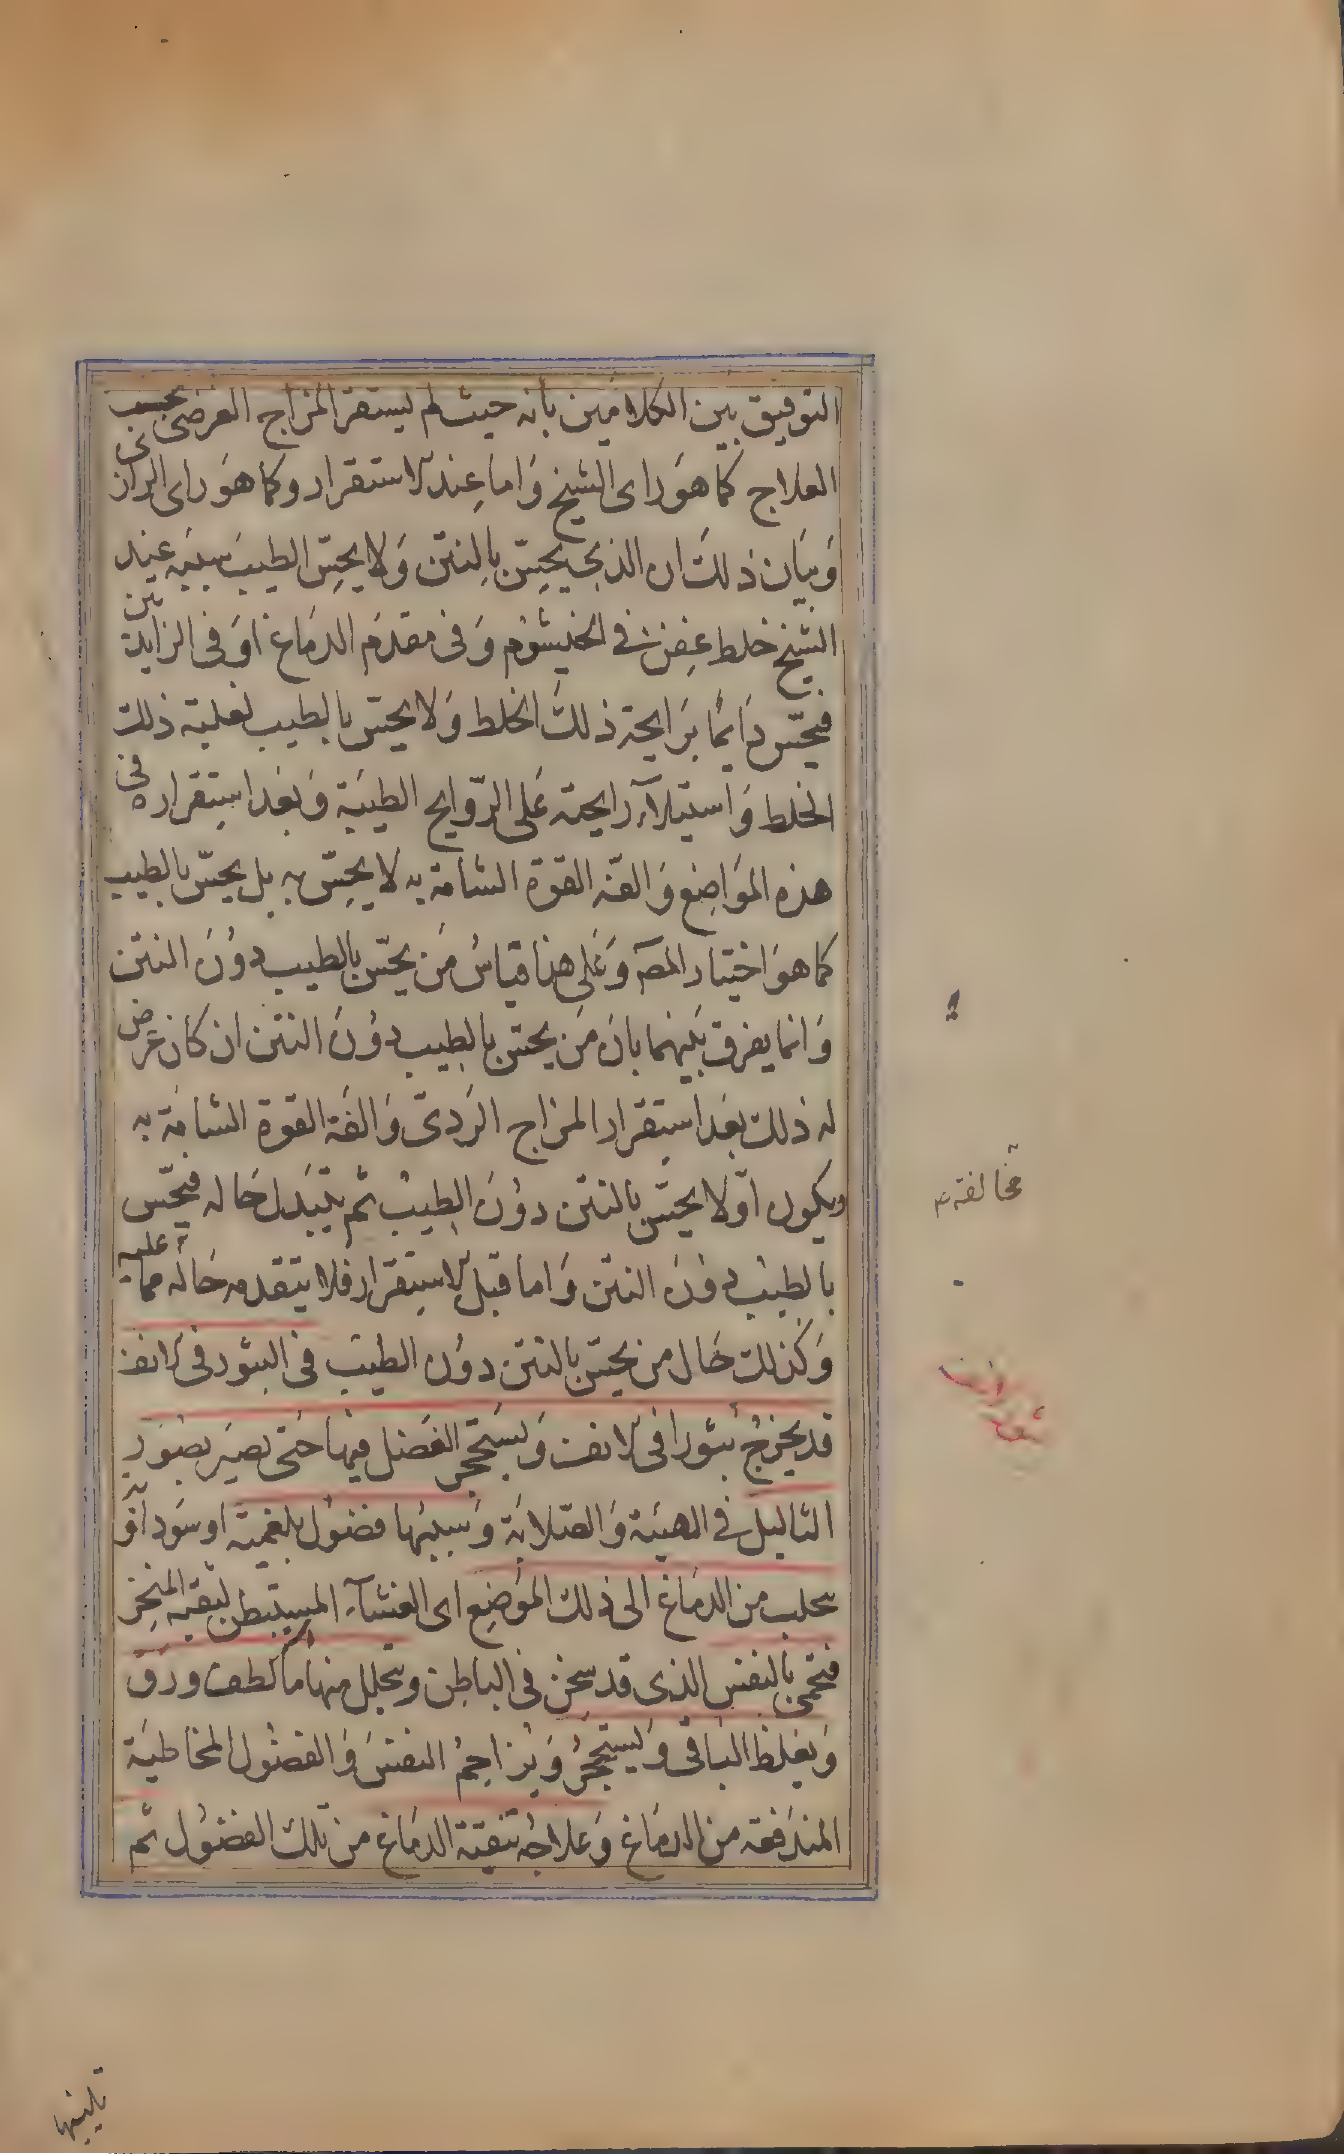 التوفيق بين الكلامين بأنه حيث لم يستقر المزاج العرضى يجب
العلاج كما هو راى الشيخ واما عند الاستقرار وكما هو راى الرازى
وبيان ذلك ان الذى يحس بالنتن ولا يحس الطيب سببه عند
الشيخ خلط عفن فى الخيشوم وفى مقدم الدماغ او فى الزايدتين
فيحس دايما برايحة ذلك الخلط ولا يحس بالطيب لغلبة ذلك
الخلط واستيلاء رايحته على الروايح الطيبة وبعد استقراره فى
هذه المواضع والفته القوة الشامة به لا يحس به بل يحس بالطيب
كما هو اختيار المصـ وعلى هذا قياس من يحس بالطيب دون النتن
وانما يفرق بينهما بان من يحس بالطيب دون النتن ان كان عرض
له ذلك بعد استقرار المزاج الردى والفة القوة الشامة به
ويكون اولا يحس بالنتن دون الطيب ثم يتبدل حاله فيحس
بالطيب دون النتن واما قبل الاستقرار فلا يتقدمه حالة عليه
وكذلك حال من يحس بالنتن دون الطيب فى البثور فى الانف
قد يخرج بثور فى الانف ويستحجر الفضل فيها حتى يصير بصور
الثاليل فى الهيئة والصلابة وسببها فضول بلغمية او سوداوية
تحلب من الدماغ الى ذلك الموضع اى الغشاء المستبطن لثقبة المنخر
فتحمى بالنفس الذى قد سخن فى الباطن ويتحلل منها ما لطف ورق
ويغلظ الباقى ويستحجر ويزاحم النفس والفضول المخاطية
المندفعة من الدماغ وعلاجه تنقية الدماغ من تلك الفضول ثم
مخالفته
تليينها